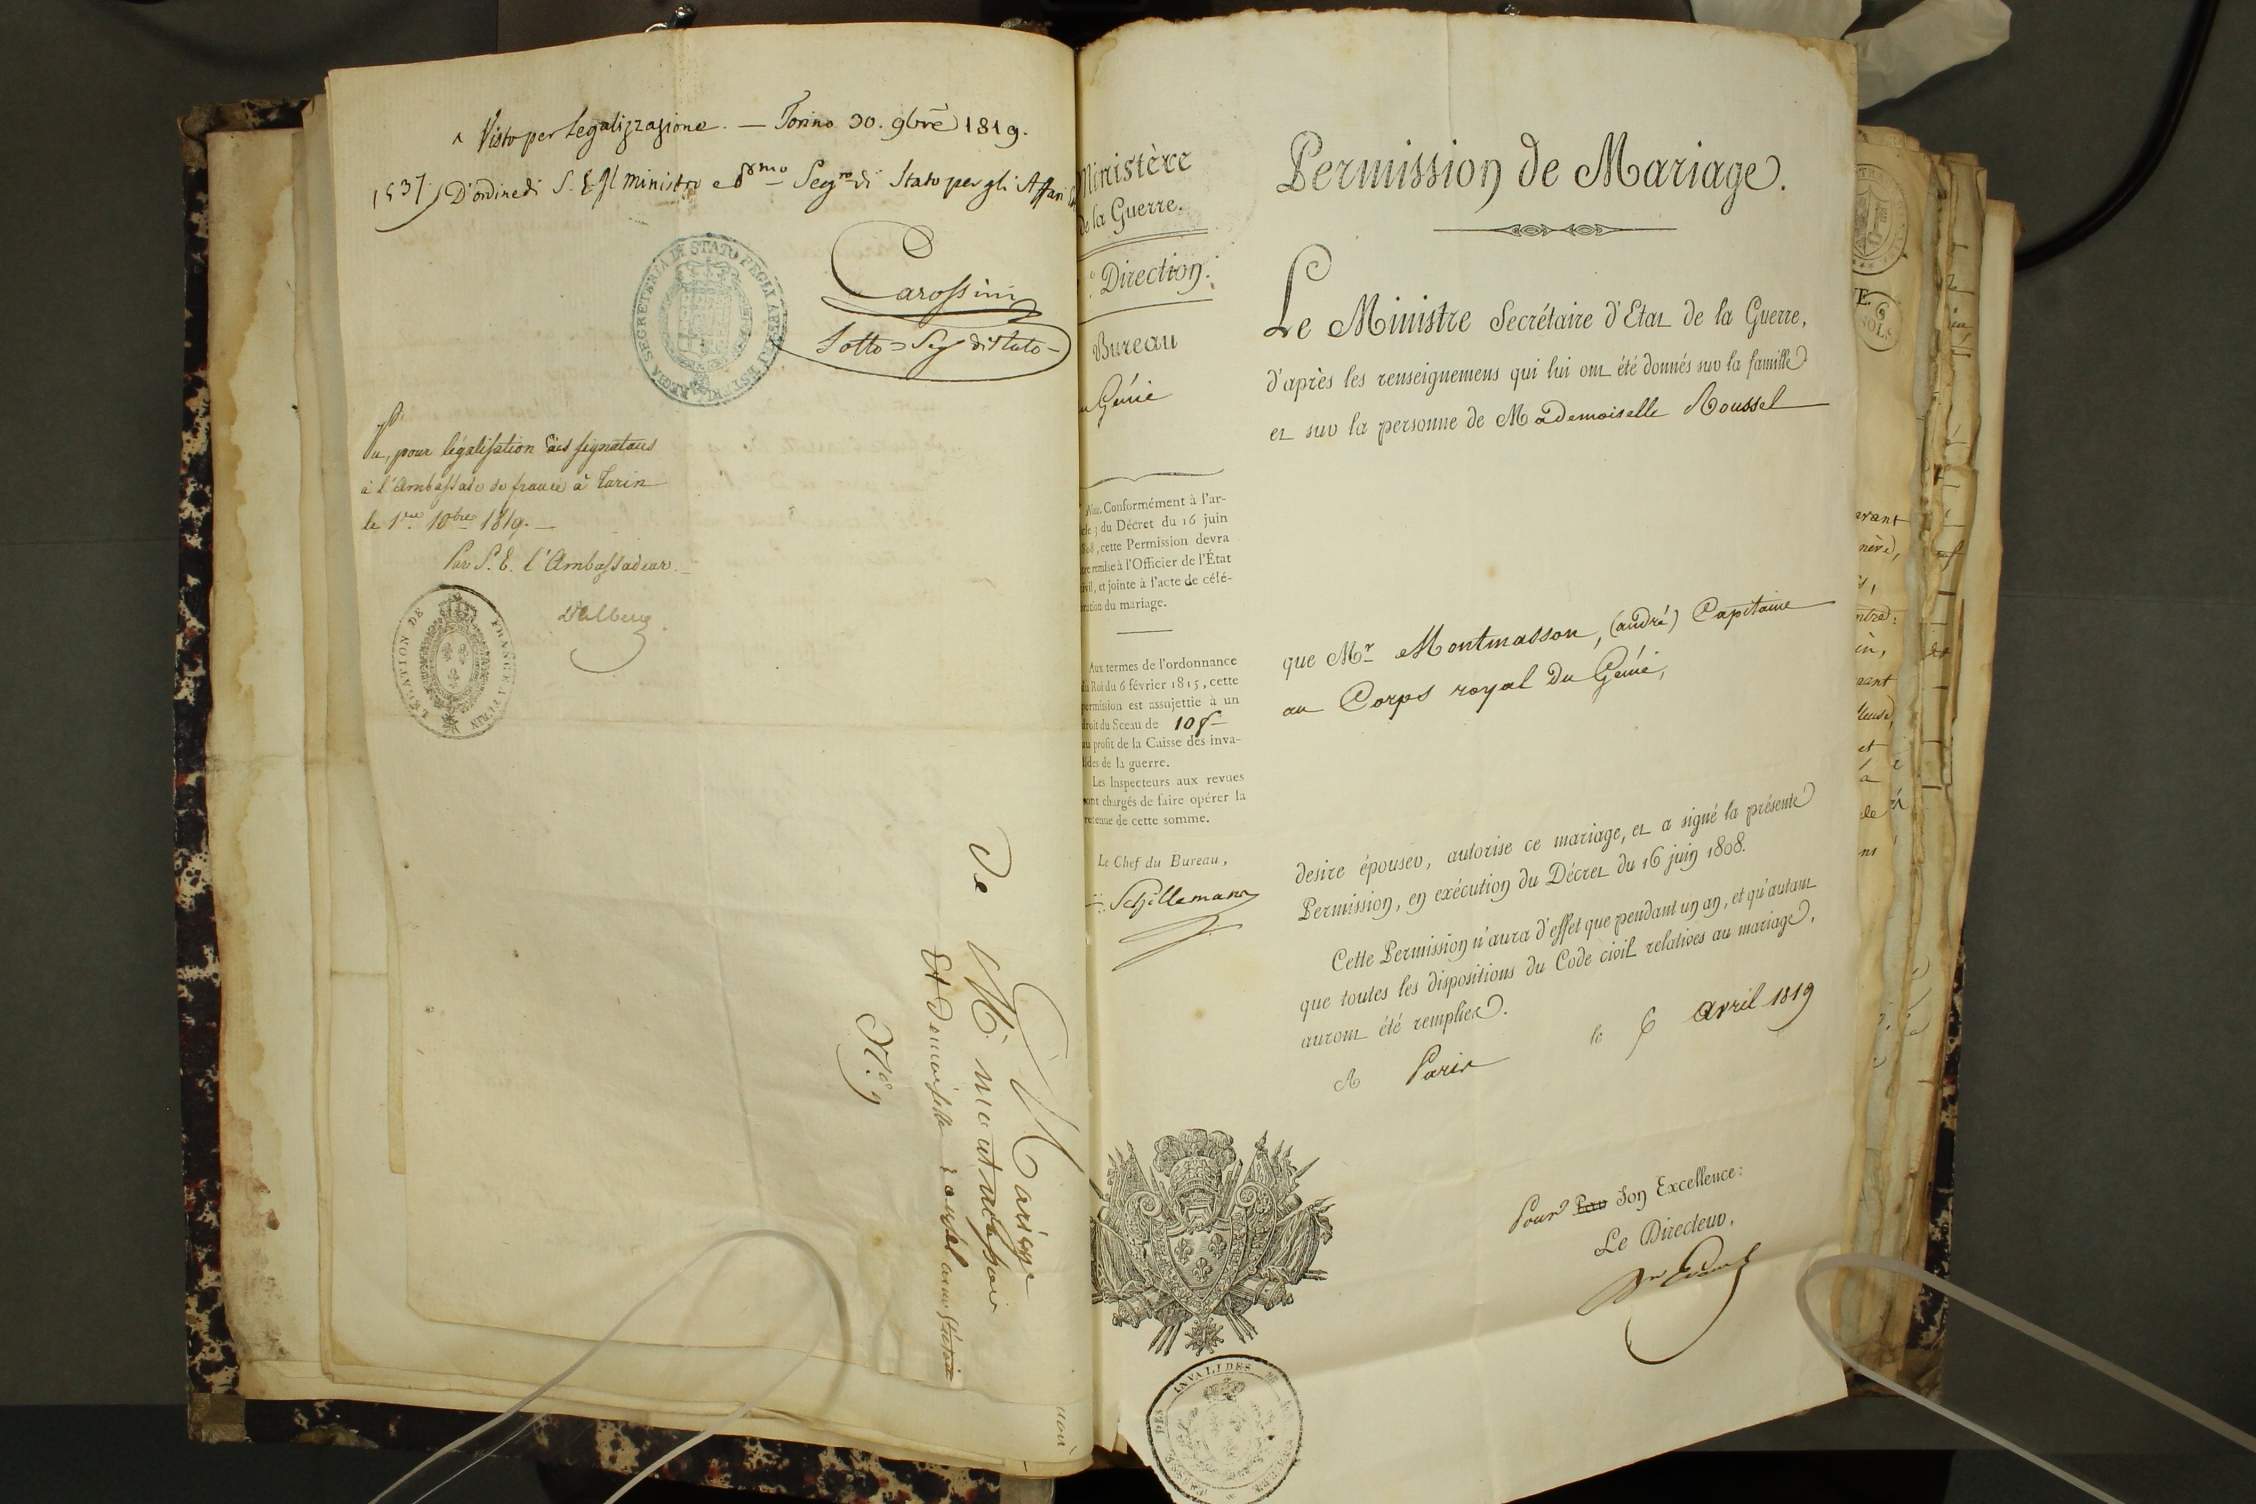 Visto per Legalizzazione. — Torino 30. 9bre 1819.
1537. D'ordine di S. E. Il Ministro e Pmo Segro di Stato per gli Affari
Carossini
Sotto Segr di Stato
REGIA SEGRETERIA DI STATO
Vu, pour légalisation des signatures
à l'Ambassade de france à Turin
le 1er 10bre 1819. —
Par S. E. l'Ambassadeur. —
Dalberg
LEGATION DE FRANCE A TURIN
Mariage
De Mr. montmasson
Et Demoiselle roussel
Ministère
de la Guerre.
Direction.
Bureau
Génie
Nota. Conformément à l'ar-
du Décret du 16 juin
, cette Permission devra
remise à l'Officier de l'État
, et jointe à l'acte de célé-
du mariage.
Aux termes de l'ordonnance
du Roi du 6 février 1815, cette
permission est assujettie à un
droit du Sceau de 10 f
au profit de la Caisse des inva-
lides de la guerre.
Les Inspecteurs aux revues
sont chargés de faire opérer la
retenue de cette somme.
Le Chef du Bureau,
Schillemans
Permission de Mariage.
Le Ministre Secrétaire d'Etat de la Guerre,
d'après les renseignemens qui lui ont été donnés sur la famille
et sur la personne de Mademoiselle Roussel
que Mr. Montmasson, (andré) Capitaine
au Corps royal du Génie,
desire épouser, autorise ce mariage, et a signé la présente
Permission, en exécution du Décret du 16 juin 1808.
Cette Permission n'aura d'effet que pendant un an, et qu'autant
que toutes les dispositions du Code civil relatives au mariage,
auront été remplies.
A Paris le 6 avril 1819
Pour Par Son Excellence:
Le Directeur,
CAISSE DES INVALIDES DE LA GUERRE